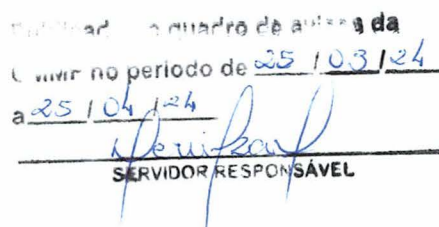 quadro de avisos da
no período de 25 / 03 / 24
a 25 / 04 / 24
SERVIDOR RESPONSÁVEL